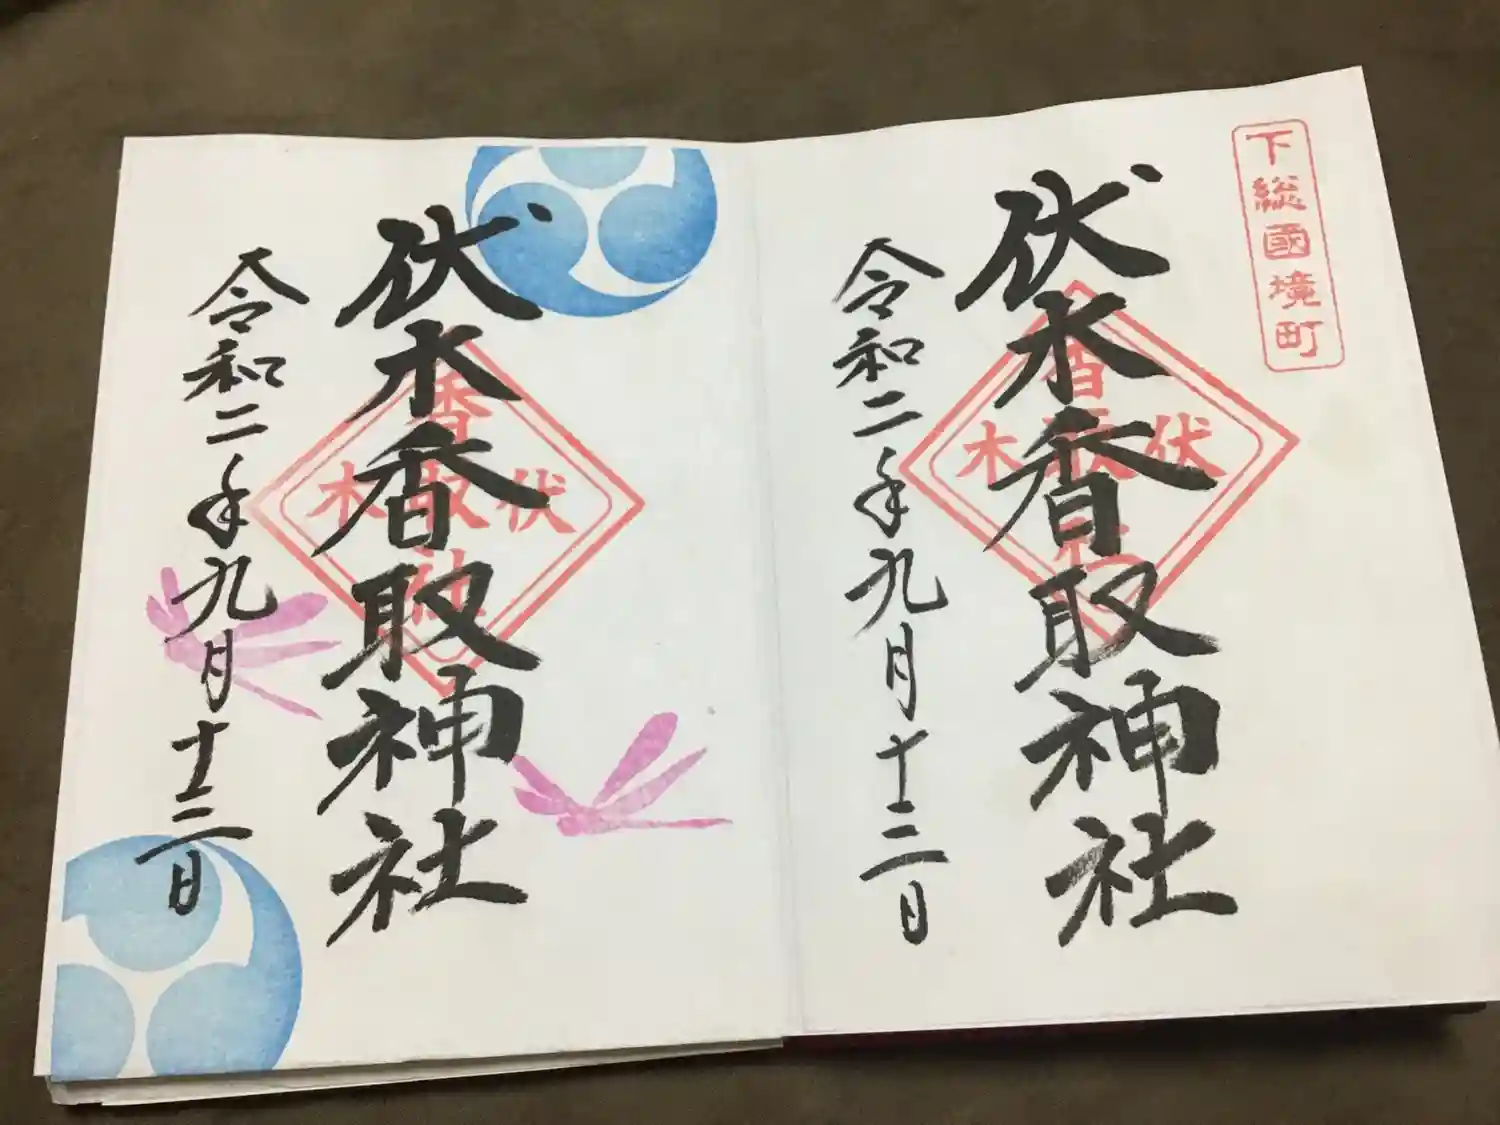 下総國境町
伏木香取神社
伏木
香取社
令和二年九月十二日
伏木香取神社
伏木
香取社
令和二年九月十二日